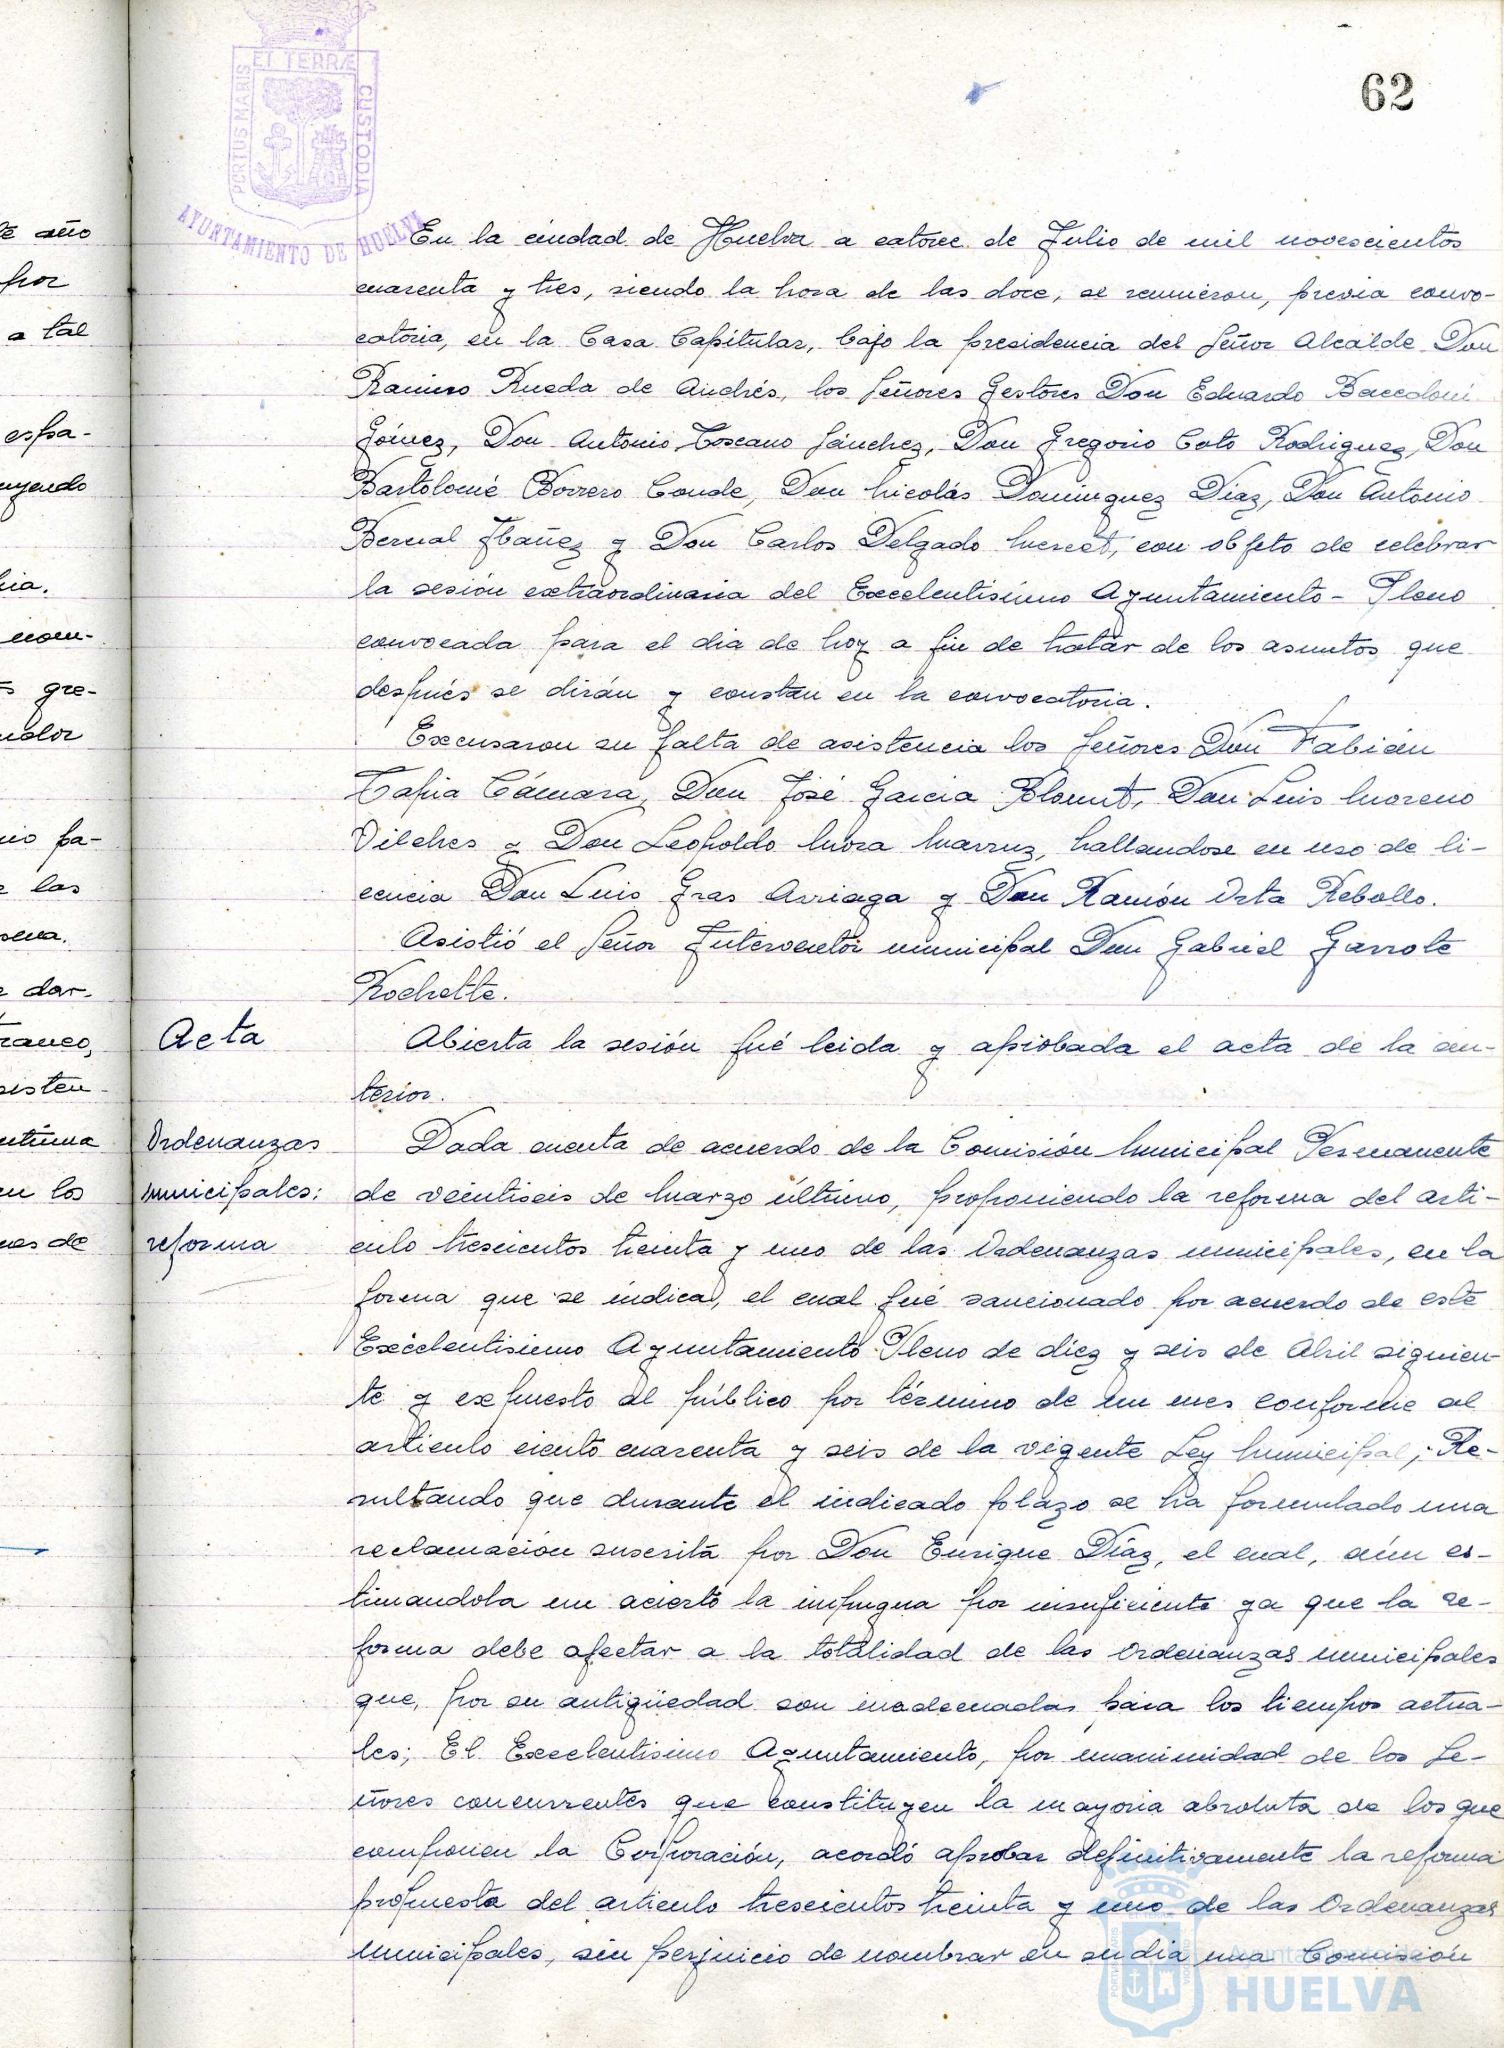 62
ET TERRÆ
PORTUS MARIS
CUSTODIA
AYUNTAMIENTO DE HUELVA
te año
por
a tal
espa-
uyendo
nom-
gre-
pa-
las
dar-
los
de
En la ciudad de Huelva a catorce de Julio de mil novescientos
cuarenta y tres, siendo la hora de las doce, se reunieron, previa convo-
catoria, en la Casa Capitular, bajo la presidencia del Señor Alcalde Don
Ramiro Rueda de Andrés, los Señores Gestores Don Eduardo Baccoloni
Gómez, Don Antonio Toscano Sánchez, Don Gregorio Coto Rodriguez, Don
Bartolomé Borrero Conde, Don Nicolás Dominguez Díaz, Don Antonio
Bernal Ibañez y Don Carlos Delgado con objeto de celebrar
la sesión extraordinaria del Excelentisimo Ayuntamiento-Pleno
convocada para el dia de hoy a fin de tratar de los asuntos que
después se dirán y constan en la convocatoria.
Excusaron su falta de asistencia los Señores Don Fabián
Tapia Cámara, Don José Garcia Don Luis Moreno
Vilches y Don Leopoldo Mora hallandose en uso de li-
cencia Don Luis Gras Arriaga y Don Ramón Orta Rebollo.
Asistió el Señor Interventor municipal Don Gabriel Garrote
Rochette.
Acta
Abierta la sesión fué leida y aprobada el acta de la an-
terior.
Ordenanzas
municipales:
reforma
Dada cuenta de acuerdo de la Comisión Municipal Permanente
de veintiseis de Marzo último, proponiendo la reforma del arti-
culo trescientos treinta y uno de las Ordenanzas municipales, en la
forma que se indica, el cual fué sancionado por acuerdo de este
Excelentisimo Ayuntamiento Pleno de diez y seis de Abril siguien-
te y expuesto al público por término de un mes conforme al
articulo ciento cuarenta y seis de la vigente Ley Municipal; Re-
sultando que durante el indicado plazo se ha formulado una
reclamación suscrita por Don Enrique Díaz, el cual, aún es-
timandola un acierto la impugna por insuficiente ya que la re-
forma debe afectar a la totalidad de las Ordenanzas municipales
que, por su antigüedad son inadecuadas para los tiempos actua-
les; El Excelentisimo Ayuntamiento, por unanimidad de los Se-
ñores concurrentes que constituyen la mayoria absoluta de los que
componen la Corporación, acordó aprobar definitivamente la reforma
propuesta del articulo trescientos treinta y uno de las Ordenanzas
municipales, sin perjuicio de nombrar en su dia una Comisión
HUELVA